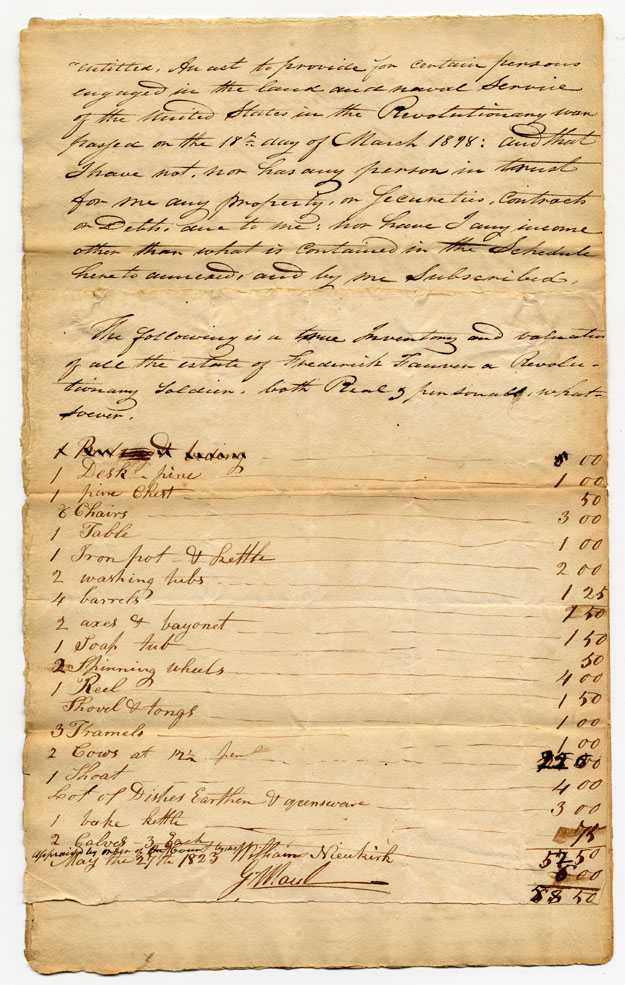 entitled, An act to provide for certain persons
engaged in the land and naval Service
of the United States in the Revolutionary war
passed on the 18th day of March 1898: and that
I have not, nor has any person in trust
for me any property, or Securities, Contracts
or Debts due to me: nor have I any income
other than what is contained in the Schedule
hereto annexed, and by me Subscribed.
The following is a true Inventory and valuation
of all the estate of Frederick Fauver a Revolu-
tionary Soldier, both Real & personal, what-
soever.
00
1 Desk - pine 1 00
1 pine Chest 50
8 Chairs 3 00
1 Table 1 00
1 Iron pot & kettle 2 00
2 washing tubs 1 25
4 barrels 1 50
2 axes & bayonet 1 50
1 Soap tub 50
2 Spinning wheels 4 00
1 Reel 1 50
Shovel & tongs 1 00
3 Tramels 1 00
2 Cows at
1 Shoat 4 00
Lot of Dishes Earthen & queensware 3 00
1 bake kettle 75
2 Calves 3 Each
Appraised by order of the Court
May the 27th 1823 William Nieukirk 57 50
00
58 50